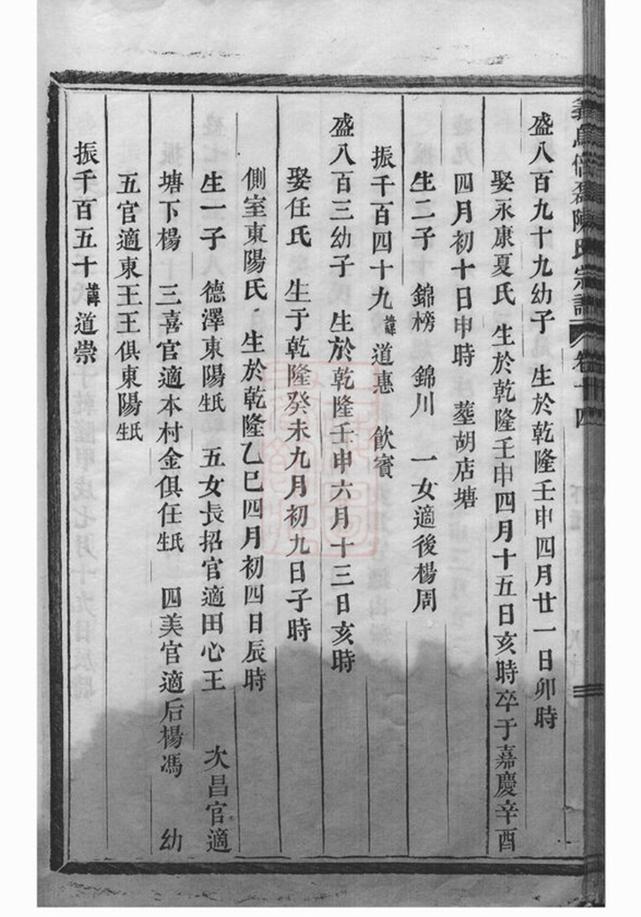 義烏倍磊陳氏宗譜 卷十四
盛八百九十九幼子 生於乾隆壬申四月廿一日卯時
娶永康夏氏 生於乾隆壬申四月十五日亥時卒于嘉慶辛酉
四月初十日申時 塟胡店塘
生二子 錦榜 錦川 一女適後楊周
振千百四十九諱道惠 飲賓
盛八百三幼子 生於乾隆壬申六月十三日亥時
娶任氏 生于乾隆癸未九月初九日子時
側室東陽氏 生於乾隆乙巳四月初四日辰時
生一子 德澤東陽氏生 五女長招官適田心王 次昌官適
塘下楊 三喜官適本村金俱任氏生 四美官適后楊馮 幼
五官適東王王俱東陽氏生
振千百五十諱道崇